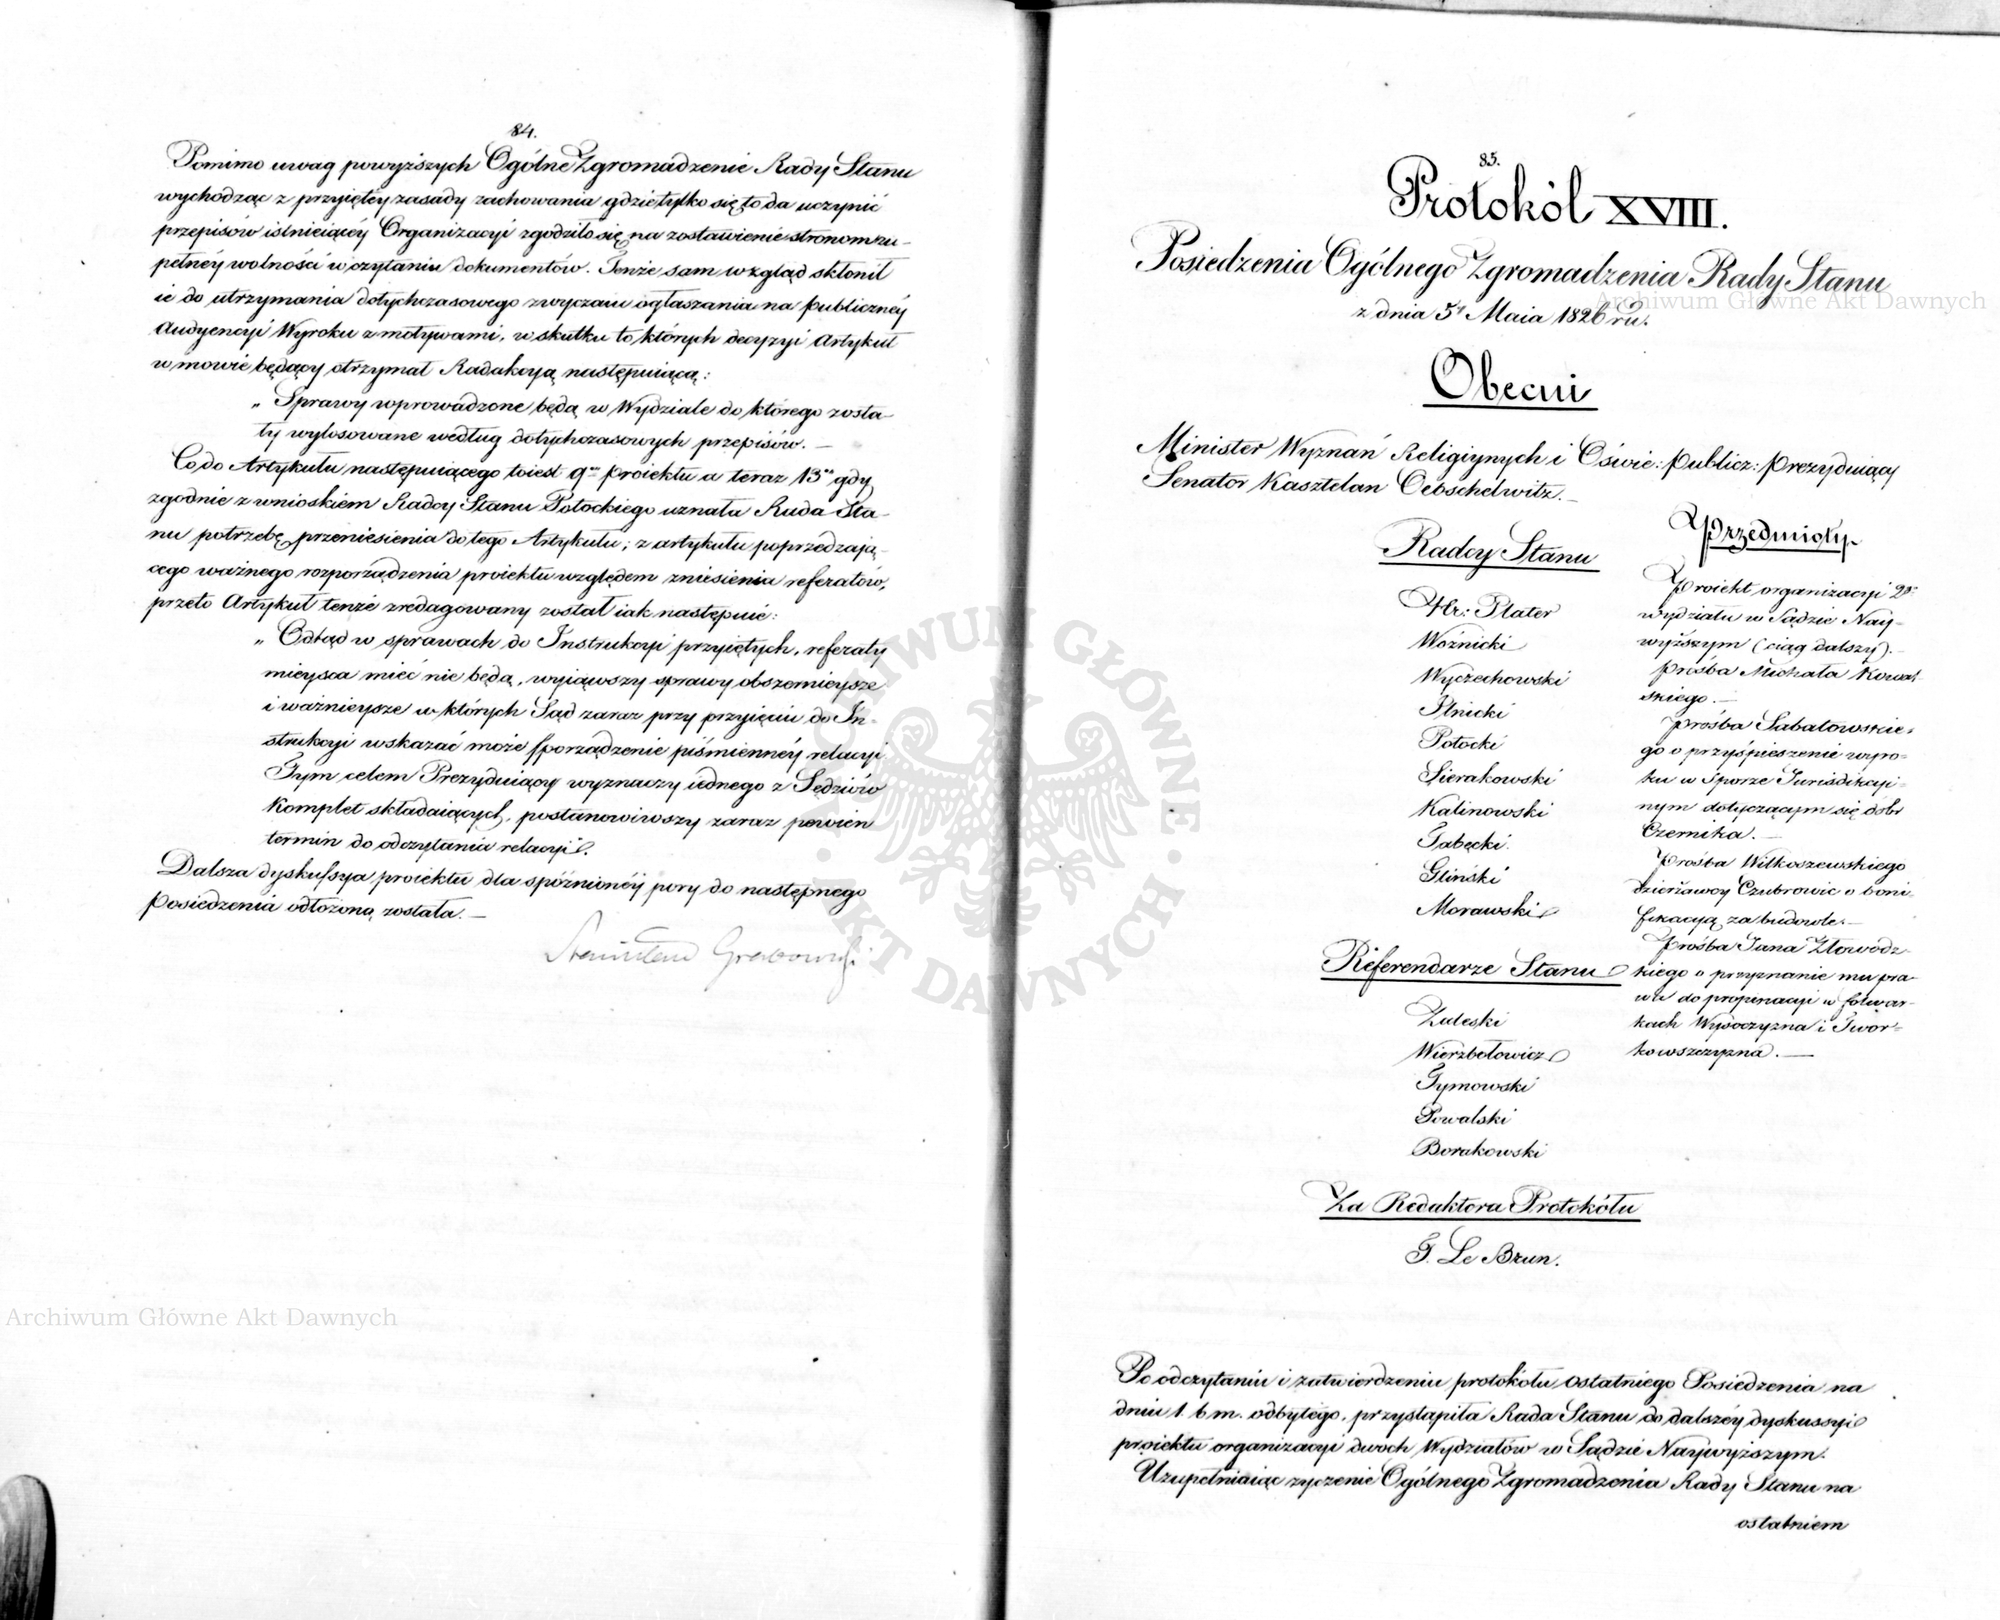 84.
Pomimo uwag powyższych Ogólne Zgromadzenie Rady Stanu
wychodząc z przyiętey zasady zachowania gdzie tylko się to da uczynić
przepisów istnieiącéy Organizacyi zgodziło się na zostawienie stronom zu-
pełnéy wolności w czytaniu dokumentów. Tenże sam wzgląd skłonił
ie do utrzymania dotychczasowego zwyczaiu ogłaszania na publicznéy
Audyencyi Wyroku z motywami, w skutku to których decyzyi Artykuł
w mowie będący otrzymał Radakcyą następuiącą:
„ Sprawy wprowadzone będą w Wydziale do którego zosta-
ły wylosowane według dotychczasowych przepisów. —
Co do Artykułu następuiącego toiest 9go proiektu a teraz 13go gdy
zgodnie z wnioskiem Radcy Stanu Potockiego uznała Rada Sta-
nu potrzebę przeniesienia do tego Artykułu; z artykułu poprzedzają-
cego ważnego rozporządzenia proiektu względem zniesienia referatów,
przeto Artykuł tenże zredagowany został iak następuie:
„ Odtąd w sprawach do Instrukcyi przyiętych, referaty
mieysca mieć nie będą, wyiąwszy sprawy obszernieysze
i ważnieysze w których Sąd zaraz przy przyięciu do In-
strukcyi wskazać może sporządzenie piśmiennéy relacyi
Tym celem Prezyduiący wyznaczy iednego z Sędziów
Komplet składaiących, postanowiwszy zaraz pewien
termin do odczytania relacyi.
Dalsza dyskussya proiektu dla spóźnionéy pory do następnego
Posiedzenia odłożoną została. —
Stanisław Grabowski
85.
Protokół XVIII.
Posiedzenia Ogólnego Zgromadzenia Rady Stanu
z dnia 5go Maia 1826 ru.
Obecni
Minister Wyznań Religiynych i Oświe: Publicz: Prezyduiący
Senator Kasztelan Oebschelwitz. —
Radcy Stanu
Hr: Plater
Woźnicki
Wyczechowski
Płnicki
Potocki
Sierakowski
Kalinowski
Tabęcki.
Gliński
Morawski
Referendarze Stanu
Zaleski
Wierzbołowicz
Tymowski
Powalski
Borakowski
Za Redaktora Protokółu
T. Le Brun.
Przedmioty
Proiekt organizacyi 2go
wydziału w Sądzie Nay-
wyższym (ciąg dalszy). —
Prośba Michała Kowal-
skiego. —
Prośba Sabatowskie-
go o przyśpieszenie wyro-
ku w Sporze Jurisdikcyi-
nym dotyczącym się dóbr
Czernika. —
Prośba Wilkoszewskiego
dzierżawcy Czubrowic o boni-
fikacyą za budowle. —
Prośba Jana Złowodz-
kiego o przyznanie mu pra-
wa do propinacyi w folwar-
kach Wysoczyzna i Twor-
kowszczyzna. —
Po odczytaniu i zatwierdzeniu protokółu ostatniego Posiedzenia na
dniu 1. b m. odbytego, przystąpiła Rada Stanu do dalszéy dyskussyi
proiektu organizacyi dwóch Wydziałów w Sądzie Naywyższym.
Uzupełniaiąc życzenie Ogólnego Zgromadzenia Rady Stanu na
ostatniem
Archiwum Główne Akt Dawnych
Archiwum Główne Akt Dawnych
ARCHIWUM GŁÓWNE · AKT DAWNYCH ·